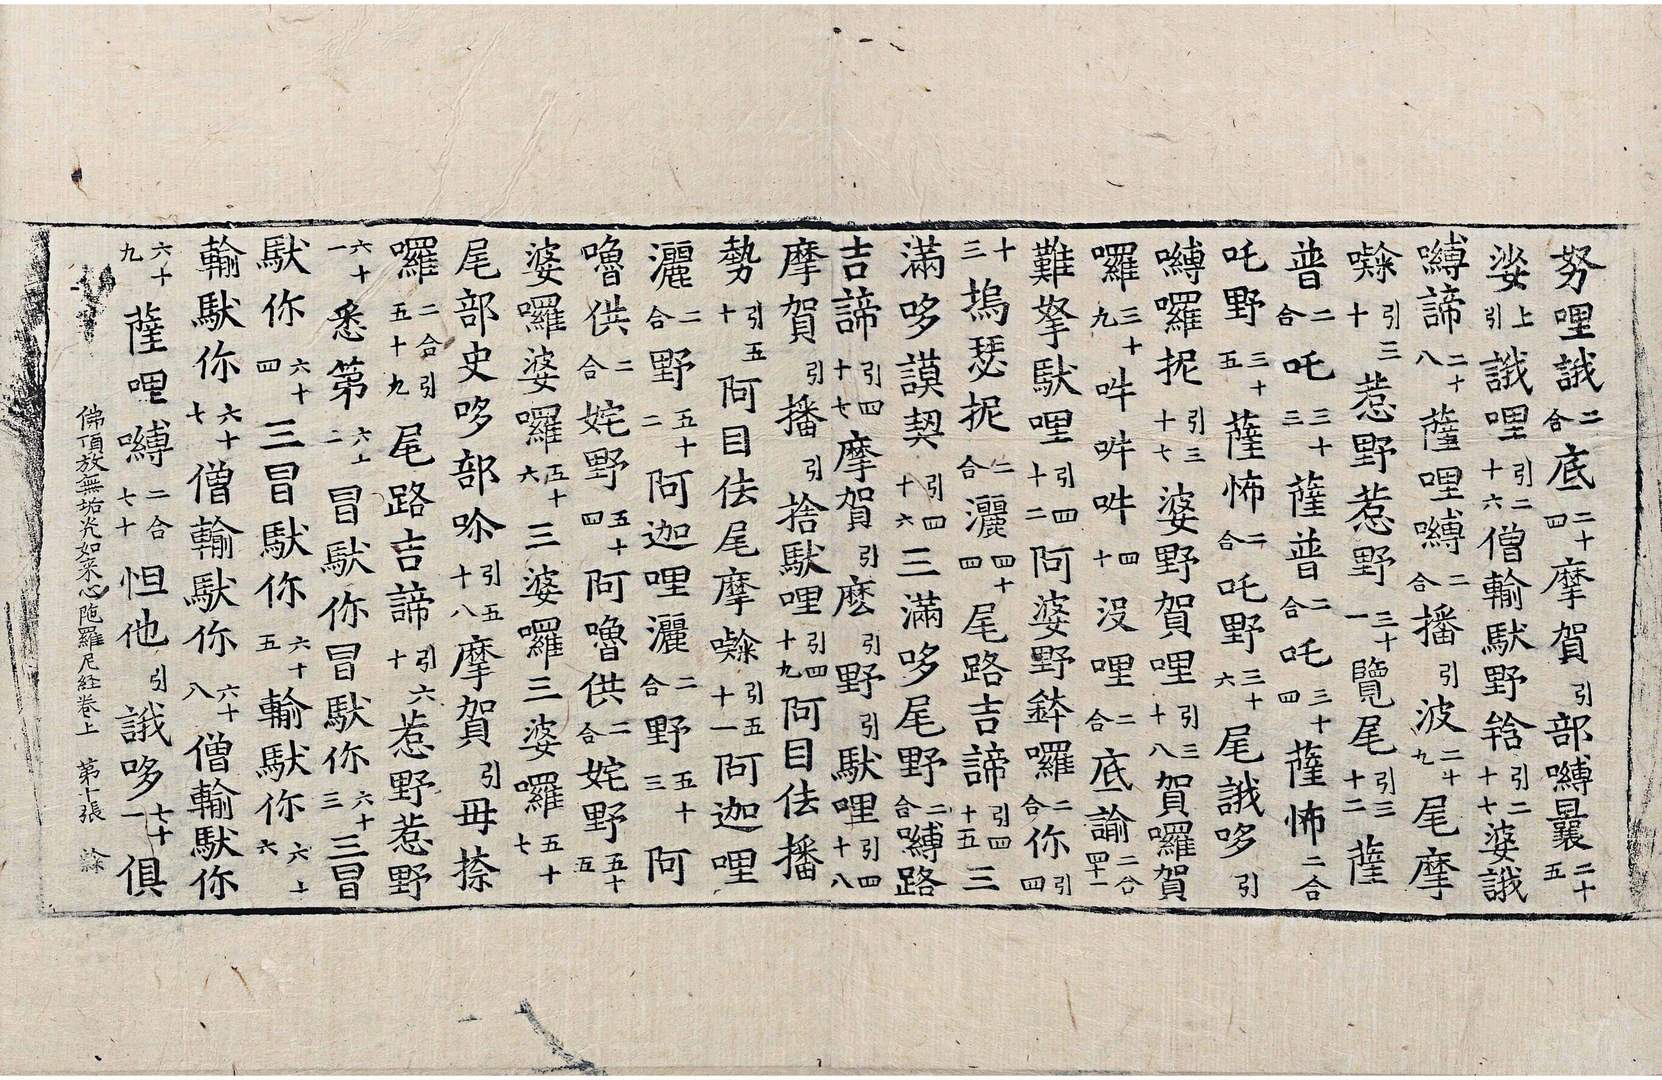 努哩誐二合底二十四摩賀引部嚩曩二十五
娑上引誐哩引二十六僧輸馱野䇶引二十七婆誐
嚩諦二十八薩哩嚩二合播引波二十九尾摩
㘑引三十惹野惹野三十一覽尾引三十二薩
普二合吒三十三薩普二合吒三十四薩怖二合
吒野三十五薩怖二合吒野三十六尾誐哆引
嚩囉抳引三十七婆野賀哩引三十八賀囉賀
囉三十九吽吽吽四十沒哩二合底諭二合四十一
難拏馱哩引四十二阿婆野鉢囉二合你引四
十三塢瑟抳二合灑四十四尾路吉諦引四十五三
滿哆謨契引四十六三滿哆尾野二合嚩路
吉諦引四十七摩賀引麽引野引馱哩引四十八
摩賀引播引捨馱哩引四十九阿目佉播
勢引五十阿目佉尾摩㘑引五十一阿迦哩
灑二合野五十二阿迦哩灑二合野五十三阿
嚕供二合姹野五十四阿嚕供二合姹野五十五
婆囉婆囉五十六三婆囉三婆囉五十七
尾部史哆部吤引五十八摩賀引毋捺
囉二合引五十九尾路吉諦引六十惹野惹野
六十一悉第六十二冐馱你冐馱你六十三三冐
馱你六十四三冐馱你六十五輸馱你六十六
輸馱你六十七僧輸馱你六十八僧輸馱你
六十九薩哩嚩二合七十怛他引誐哆七十一俱
佛頂放無垢光如来心陁羅尼経卷上 第十張